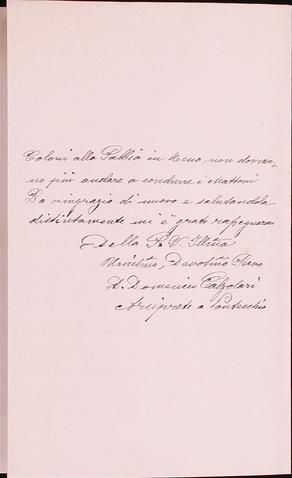 Coloni alla Sabbia in Reno, non dovran-
no più andare a condurre i mattoni
La ringrazio di nuovo e salutandola
distintamente mi è grato rassegnarmi
Della S. V. Illma
Umilmo, Devotmo Servo
D. Domenico Calzolari
Arciprete a Pontecchio